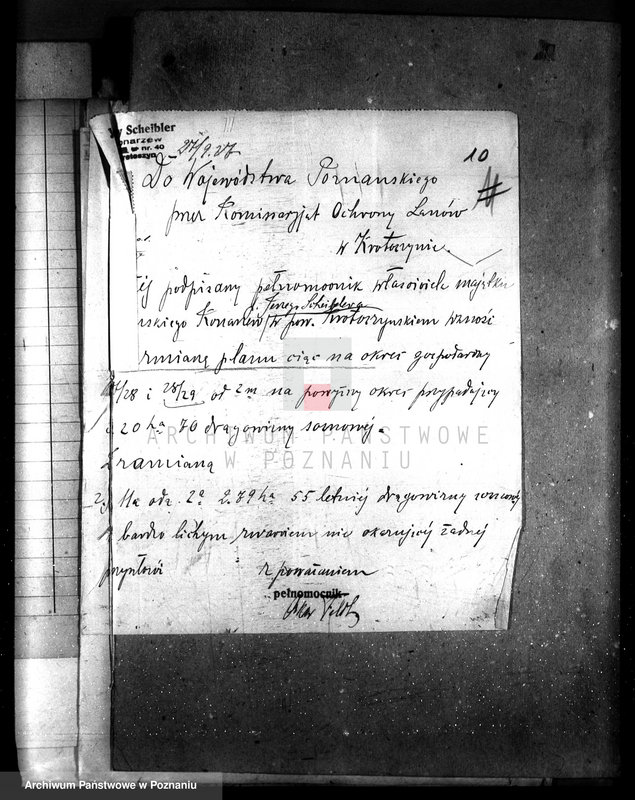 Scheibler
nr. 40
27/9.27
10
Do Województwa Poznańskiego
przez Komisaryjat Ochrony Lasów
w Krotoszynie
podpisany pełnomocnik właściciela majątku
Jerzego Scheiblera
w pow. Krotoszyńskiem wnosi
zmianę planu cięć na okres gospodarczy
/28 i 28/29 od 2m na powyższy okres przypadający
20 ha 70 drągowiny sosnowej.
Zamianą
2) Na odz. 2a 2.79 ha 55 letniej drągowiny sosnowej
bardzo lichym zwarciem nie okazującej żadnej
z poważaniem
pełnomocnik
ARCHIWUM PAŃSTWOWE
W POZNANIU
Archiwum Państwowe w Poznaniu